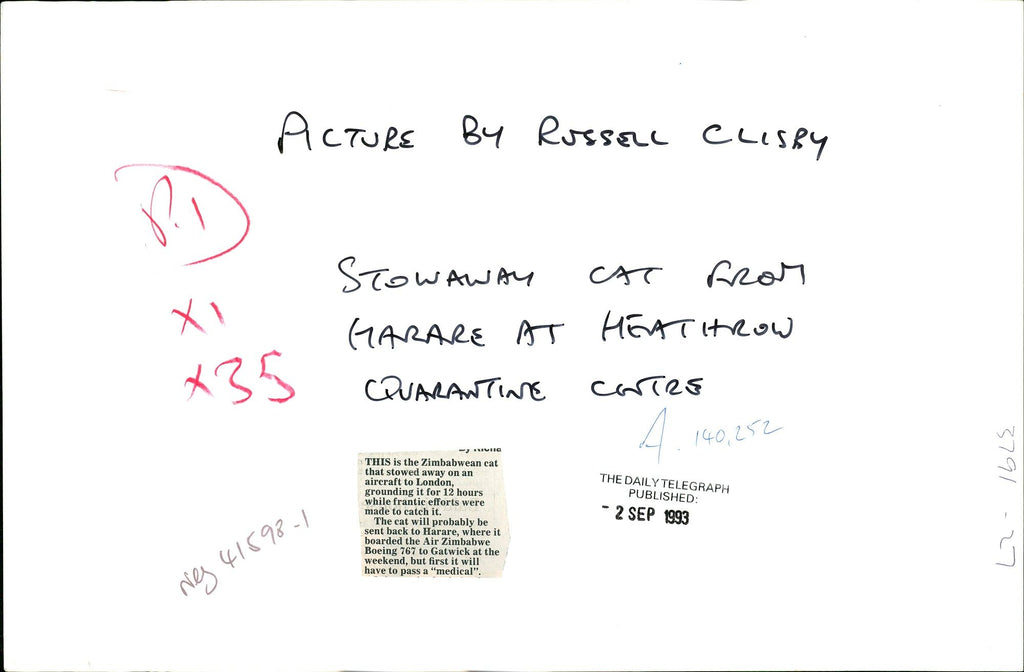 PICTURE BY RUSSELL CLISBY
P.1
STOWAWAY CAT FROM
X1
HARARE AT HEATHROW
X35
QUARANTINE CENTRE
A. 140,252
THIS is the Zimbabwean cat
that stowed away on an
aircraft to London,
grounding it for 12 hours
while frantic efforts were
made to catch it.
The cat will probably be
sent back to Harare, where it
boarded the Air Zimbabwe
Boeing 767 to Gatwick at the
weekend, but first it will
have to pass a “medical”.
THE DAILY TELEGRAPH
PUBLISHED:
- 2 SEP 1993
Neg 41598-1